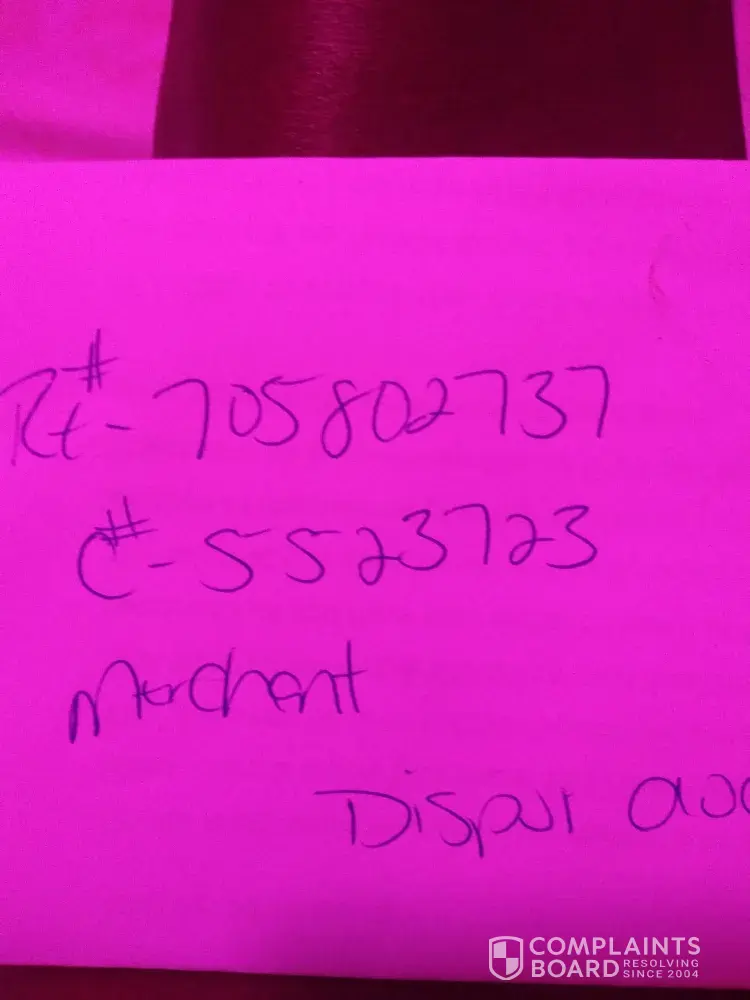 Rt#-705802737
C#-5523723
Merchant
Dispur
COMPLAINTS
BOARD RESOLVING
SINCE 2004